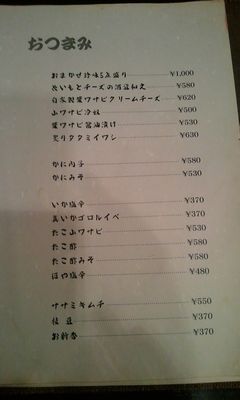 おつまみ
おまかせ珍味5点盛り ¥1,000
あいもとチーズの酒盗和え ¥580
自家製葉ワサビクリームチーズ ¥620
山ワサビ冷奴 ¥500
葉ワサビ醤油漬け ¥530
炙りタタミイワシ ¥630
かに内子 ¥580
かにみそ ¥530
いか塩辛 ¥370
真いかゴロルイベ ¥370
たこ山ワサビ ¥530
たこ酢 ¥580
たこ酢みそ ¥580
ほや塩辛 ¥480
ササミキムチ ¥550
枝豆 ¥370
お新香 ¥370